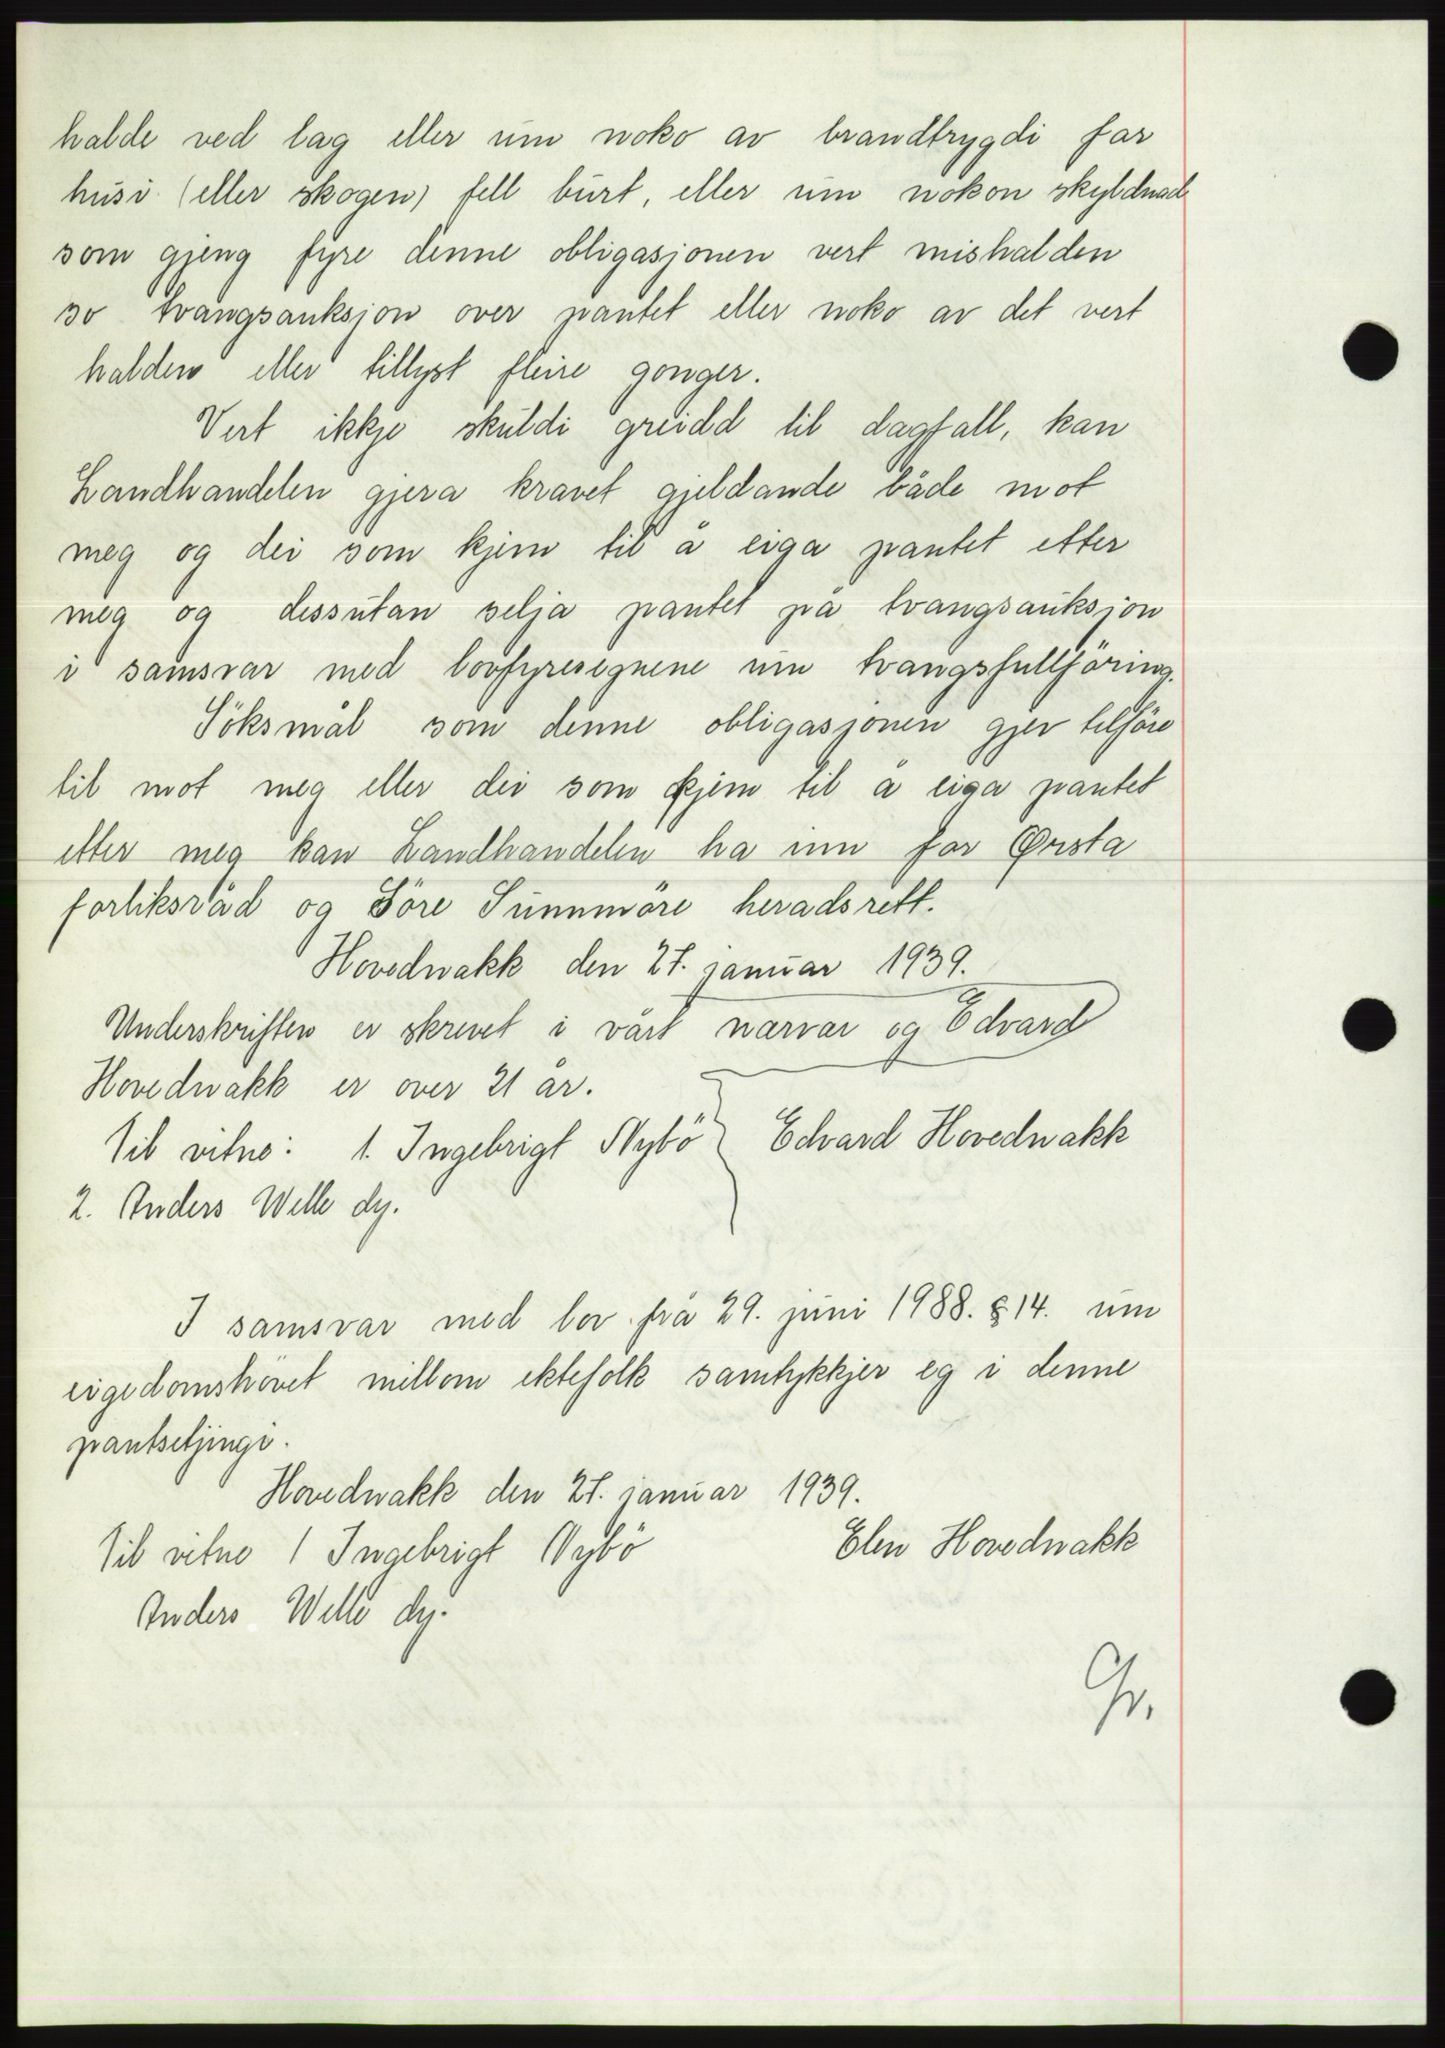 halde ved lag eller um noko av brandtrygdi for
husi (eller skogen) fell burt, eller um nokon skyldnad
som gjeng fyre denne obligasjonen vert mishalden
so tvangsauksjon over pantet eller noko av det vert
halden eller tillyst fleire gonger.
Vert ikkje skuldi greidd til dagfall, kan
Landhandelen gjera kravet gjeldande både mot
meg og dei som kjem til å eiga pantet etter
meg og dessutan selja pantet på tvangsauksjon
i samsvar med lovfyresegnene um tvangsfullföring.
Söksmål som denne obligasjonen gjev tilföre
til mot meg eller dei som kjem til å eiga pantet
etter meg kan Landhandelen ha inn for Ørsta
forliksråd og Söre Sunnmöre heradsrett.
Hovednakk den 27. januar 1939.
Underskriften er skrevet i vårt nærvær og Edvard
Hovednakk er over 21 år.
Til vitne: 1. Ingebrigt Nybö Edvard Hovednakk
2. Anders Welle dy.
I samsvar med lov frå 29. juni 1988. § 14. um
eigedomshövet millom ektefolk samtykkjer eg i denne
pantsetjingi.
Hovednakk den 27. januar 1939.
Til vitne 1 Ingebrigt Nybö Elen Hovednakk
Anders Welle dy.